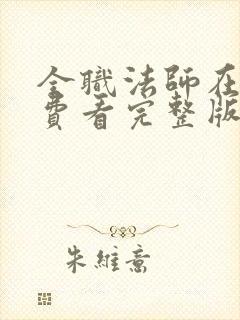 全職法師在
費看完整版
朱維熹